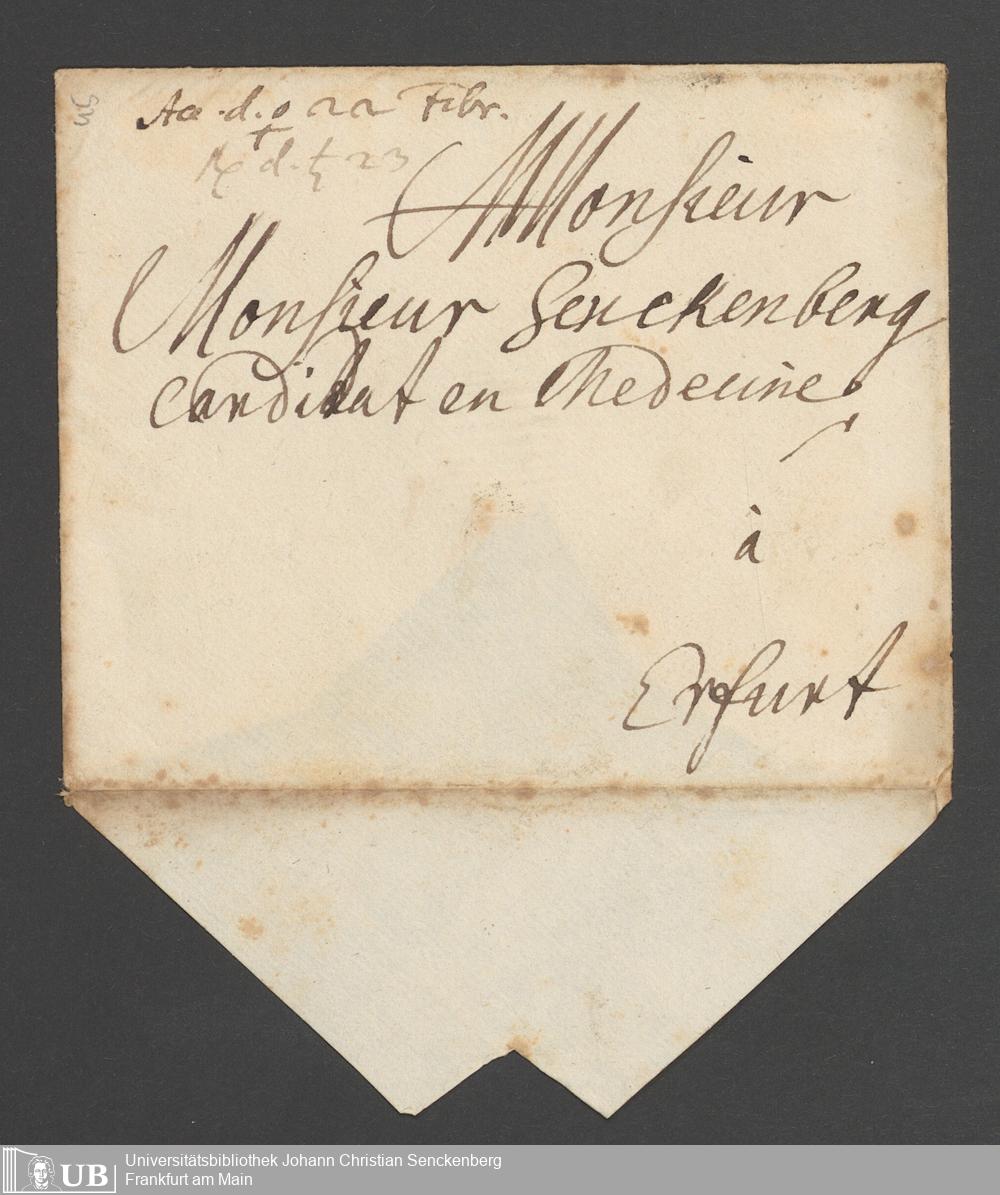 Acc. d. ♀ 22 Febr.
℞ d. ♄ 23
Monsieur
Monsieur Senckenberg
Candidat en Medecine
à
Erfurt
UB
Universitätsbibliothek Johann Christian Senckenberg
Frankfurt am Main